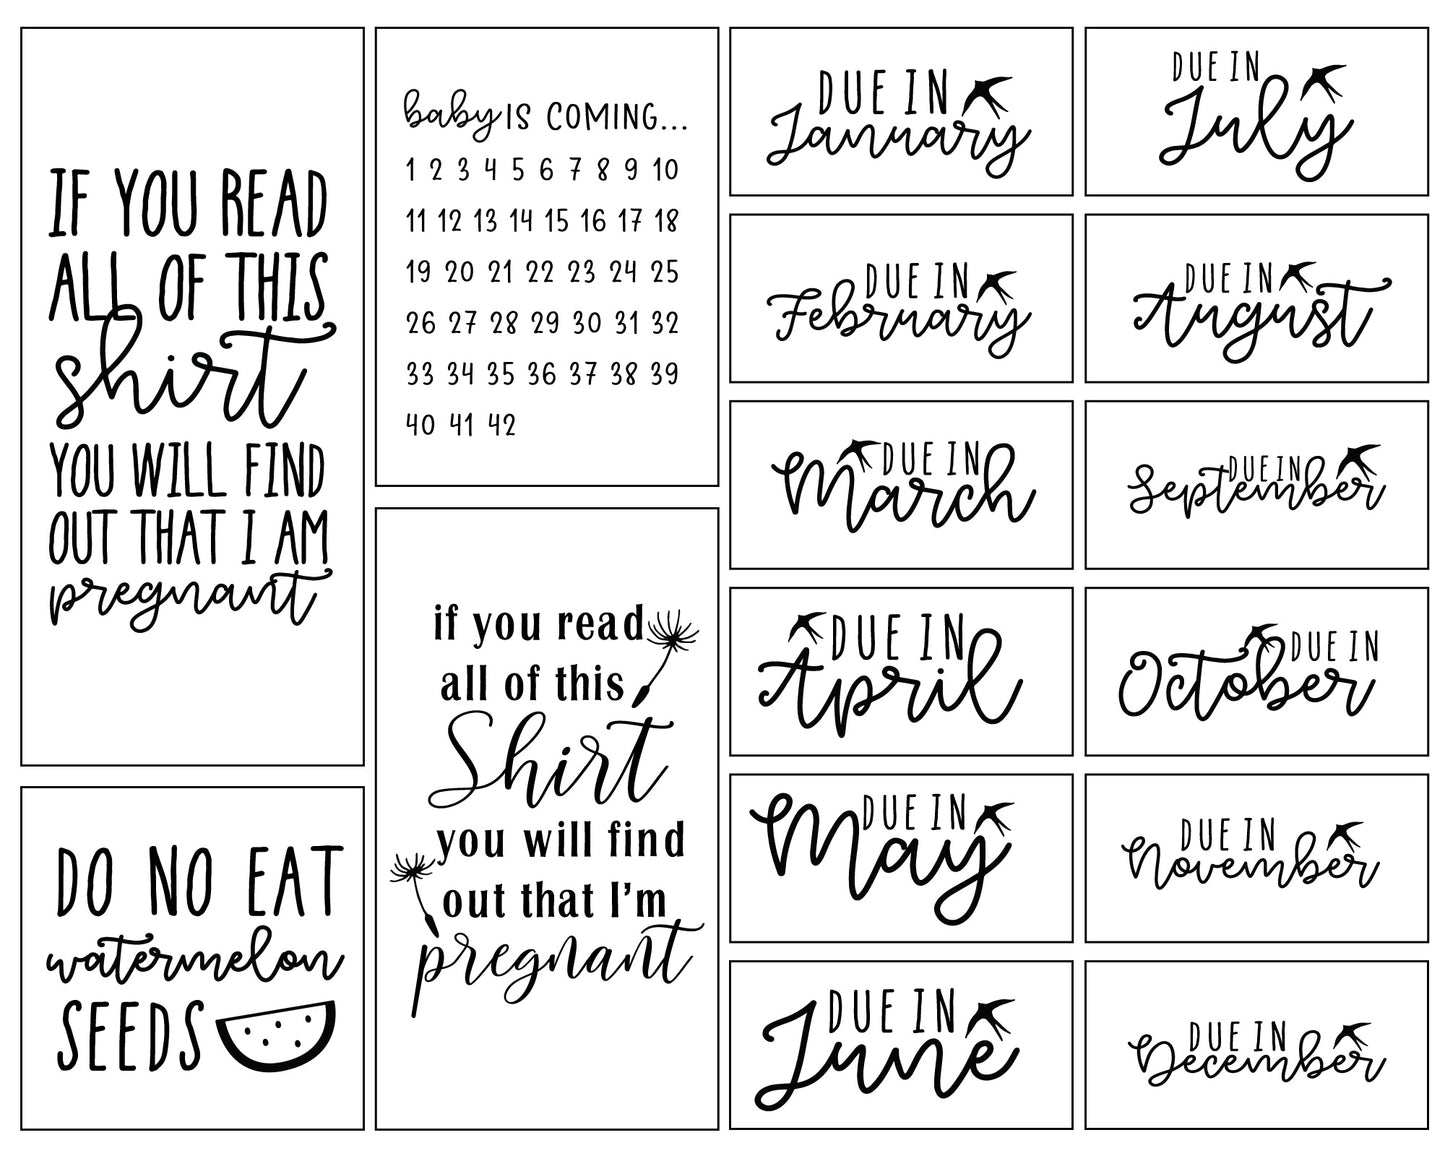 IF YOU READ
ALL OF THIS
shirt
YOU WILL FIND
OUT THAT I AM
pregnant
DO NO EAT
watermelon
SEEDS
baby IS COMING...
1 2 3 4 5 6 7 8 9 10
11 12 13 14 15 16 17 18
19 20 21 22 23 24 25
26 27 28 29 30 31 32
33 34 35 36 37 38 39
40 41 42
if you read
all of this
Shirt
you will find
out that I'm
pregnant
DUE IN
January
DUE IN
February
DUE IN
March
DUE IN
April
DUE IN
May
DUE IN
June
DUE IN
July
DUE IN
August
DUE IN
September
DUE IN
October
DUE IN
November
DUE IN
December